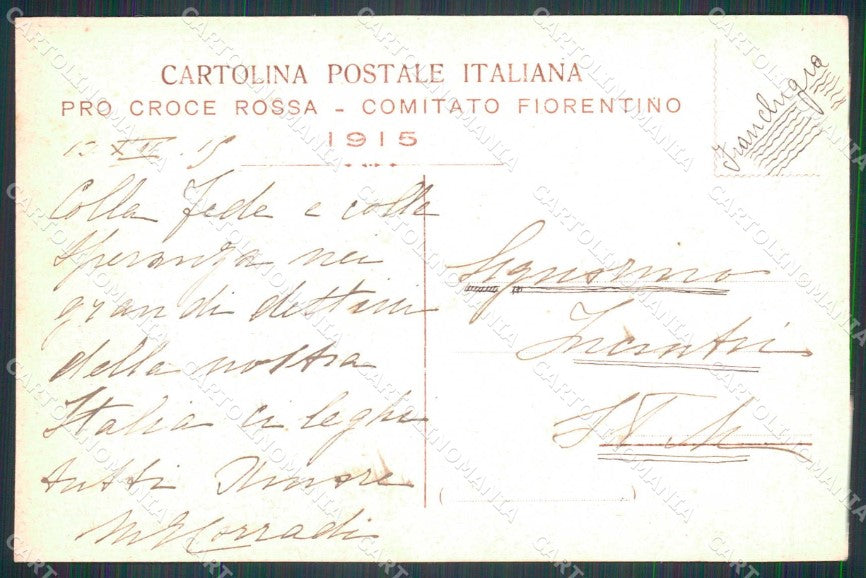 CARTOLINA POSTALE ITALIANA
PRO CROCE ROSSA - COMITATO FIORENTINO
1915
Franchigia
Colla fede e colla
speranza nei
grandi destini
della nostra
Italia ci leghi
tutti Amore
Corradi
Signorino
Incontri
CARTOLINOMANIA